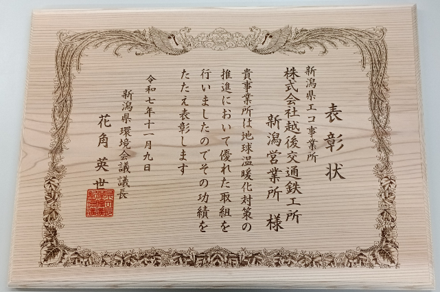 表彰状
新潟県エコ事業所
株式会社越後交通鉄工所
新潟営業所 様
貴事業所は地球温暖化対策の
推進において優れた取組を
行いましたのでその功績を
たたえ表彰します
令和七年十一月九日
新潟県環境会議議長
花角英世